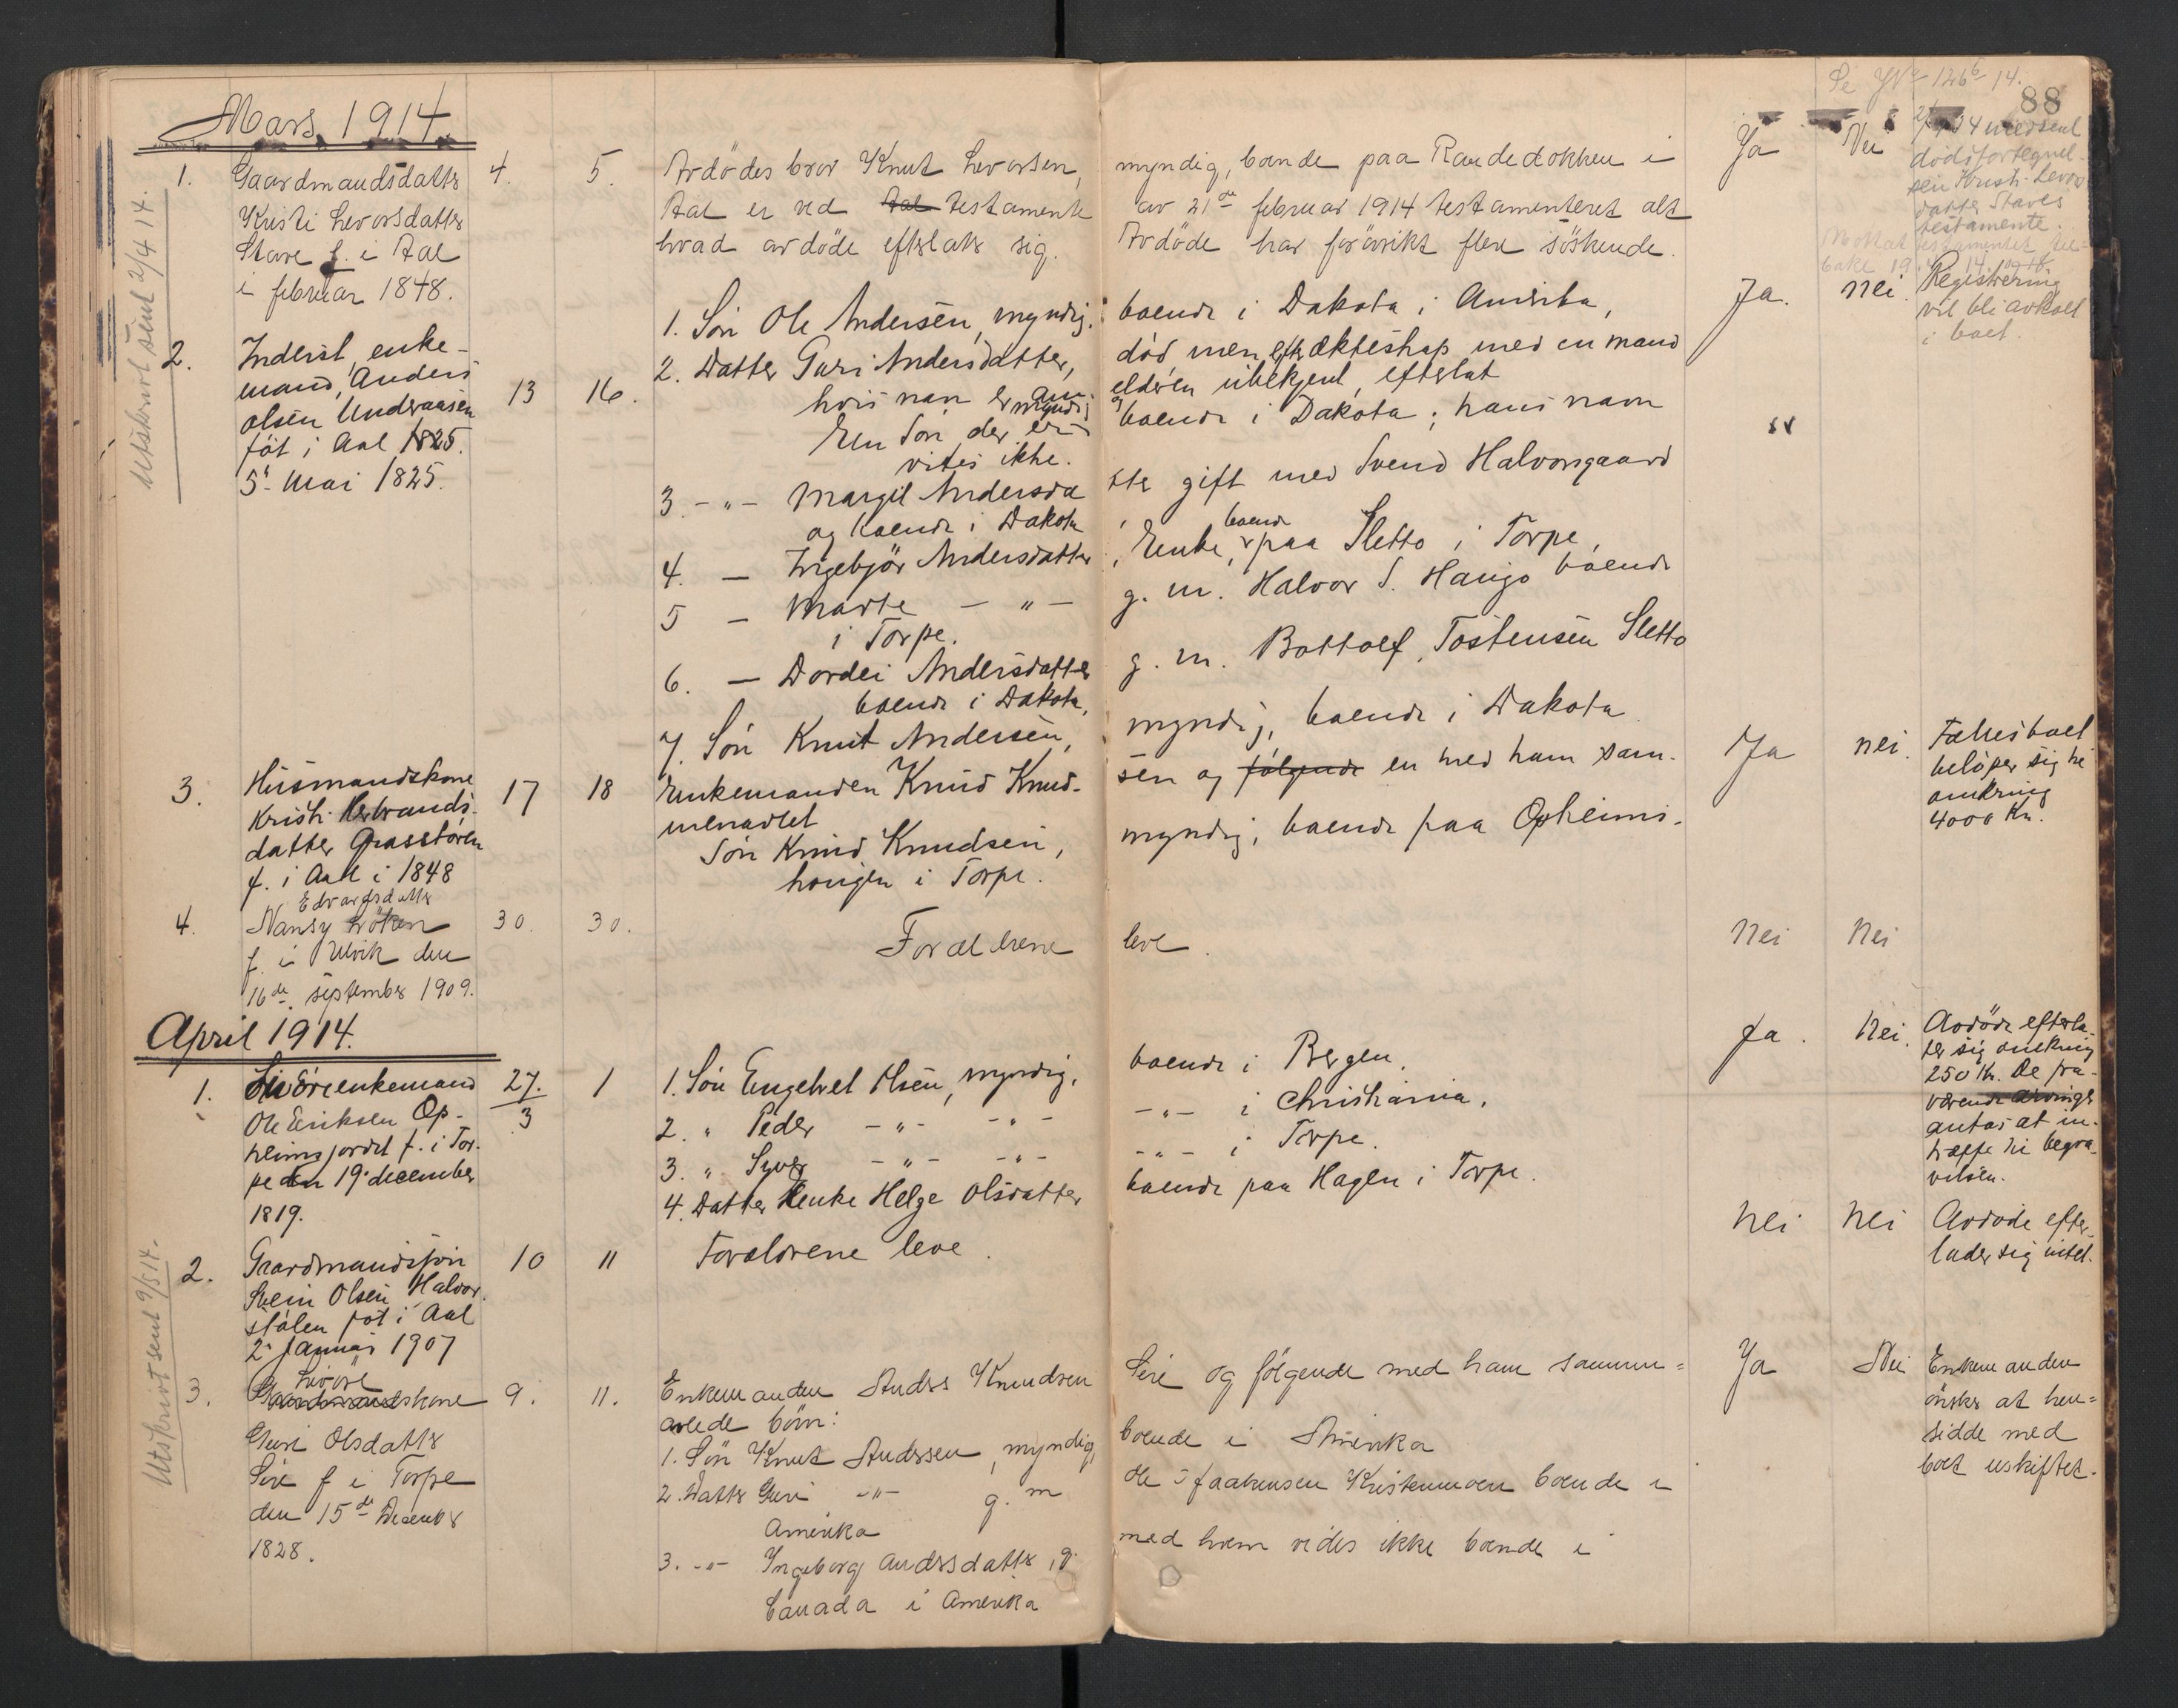 88
Mars 1914
Utskrivt sent 2/4 14.
1. Gaardmandsdatter 4. 5. Avdödes bror Knut Levorsen, myndig, boende paa Raudedokken i Ja Nei
Kristi Levorsdatter Aal er ved Aal testamente av 21de februar 1914 testamenteret alt
Stave f. i Aal hvad avdöde efterlater sig. Avdöde har forövrikt flere söskende.
i februar 1848.
2/4 14 medsent
dödsfortegnel-
sen Kristi Levors-
datter Staves
testamente.
Mottat testamentet til-
bake
2. Inderst, enke- 13 16. 1. Sön Ole Andersen, myndig, boende i Dakota i Amerika, Ja. nei. Registrering
mand, Anders 2. Datter Guri Andersdatter, död men efter ekteskap med en mand vil bli avholt
Olsen Underaasen hvis navn er ubekjent, efterlat i boet.
föt i Aal 1825. En Sön, der er myndig og boende i Dakota; hans navn
5te Mai 1825. vites ikke.
3. -"- Margit Andersdatter gift med Svend Halvorsgaard
og boende i Dakota
4. — Ingebjör Andersdatter, Enke, boende paa Sletto i Torpe,
5 — Marte — " — g. m. Halvor S. Haugo boende
i Torpe.
6. — Dordei Andersdatter g. m. Bottolf Tostensen Sletto
boende i Dakota,
7. Sön Knut Andersen, myndig, boende i Dakota
3. Husmandskone 17 18 Enkemanden Knud Knud- sen og følgende en med ham sam- Ja nei. Fællesboet
Kristi Herbrands- menavlet belöper sig til
datter Grasstøren Sön Knud Knudsen, myndig, boende paa Opheims- omkring
f. i Aal i 1848 haugen i Torpe. 4000 Kr.
Edvardsdatter
4. Nansy Löken 30. 30. Forældrene leve. Nei Nei
f. i Ulvik den
16de september 1909.
April 1914.
1. enkemand 27/3 1 1. Sön Engebret Olsen, myndig, boende i Bergen. Ja. Nei. Avdöde efterla-
Ole Eriksen Op- 2. " Peder -"- -"- -"- i Christiania. ter sig omkring
heimsjordet f. i Tor- 3. " Syver -"- -"- -"- i Torpe. 250 Kr. De fra-
pe den 19. december 4. Datter Enke Helge Olsdatter boende paa Hagen i Torpe. værende arvinger
1819. antas at in-
træffe til begra-
velsen.
Utskrivt sent 9/5 14.
2. Gaardmandssön 10 11 Forældrene leve. Nei Nei Avdöde efter-
Svein Olsen Halvor- lader sig intet.
stölen föt i Aal
2. Januar 1907
3. Gaardmandskone 9. 11. Enkemanden Anders Knudsen Sire og følgende med ham sammen= Ja Nei Enkemanden
Guri Olsdatter avlede börn: önsker at hen=
Sire f i Torpe 1. Sön Knut Andersen, myndig, boende i Amerika sidde med
den 15de December 2. Datter Guri -"- g. m Ole Jaakensen Kristenmoen boende i boet uskiftet.
1828. Amerika
3. -"- Ingeborg Andersdatter, g. med hvem vides ikke boende i
Canada i Amerika